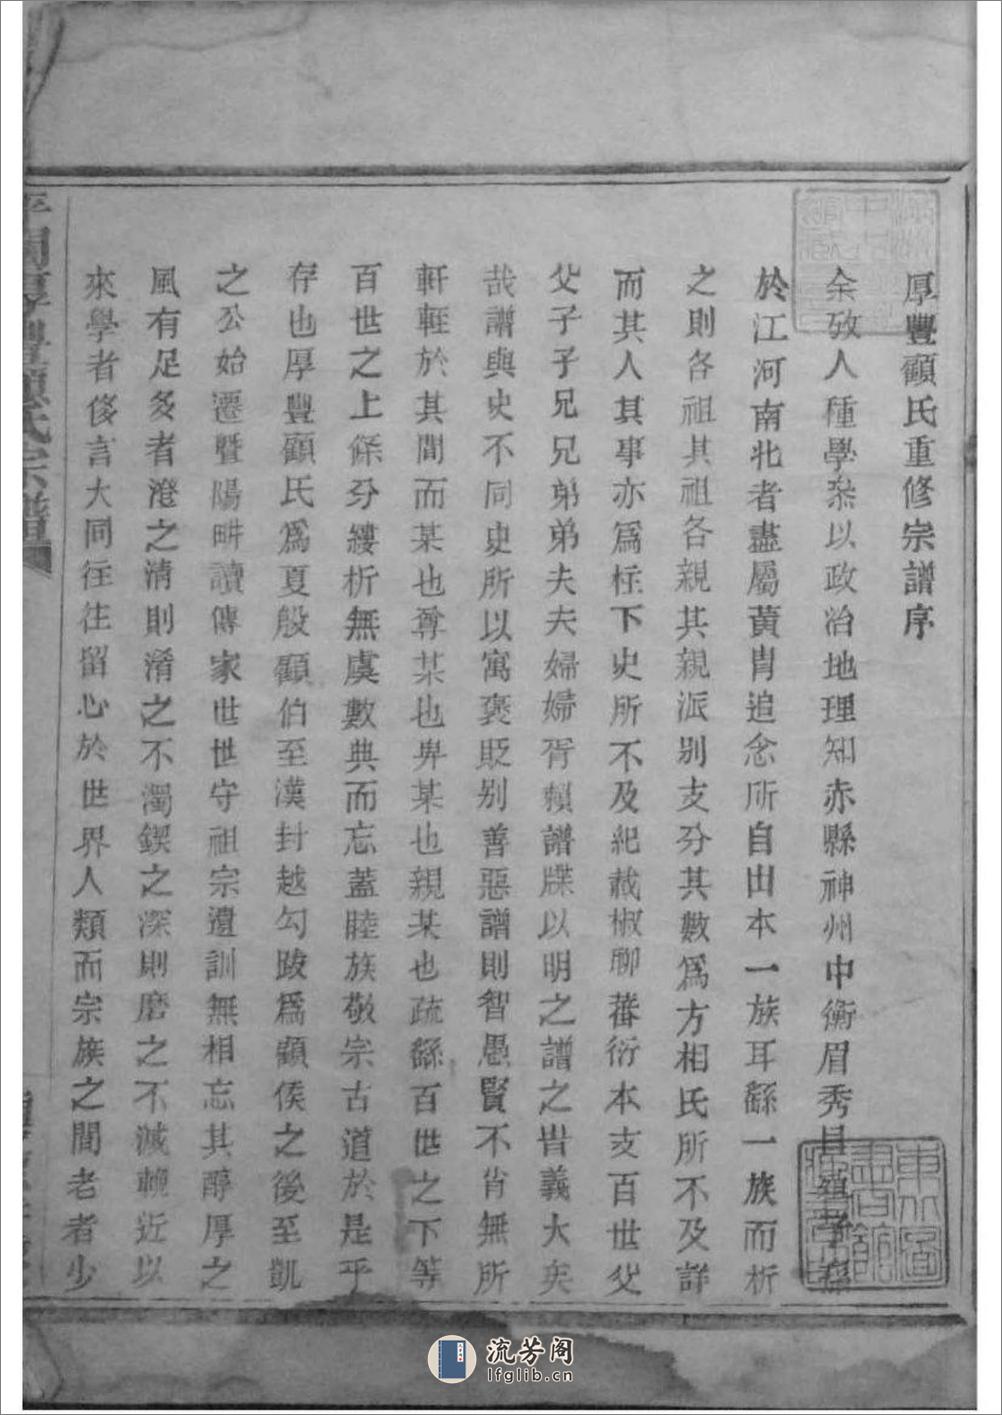 厚豐顧氏重修宗譜序
余攷人種學叅以政治地理知赤縣神州中衡眉秀目
於江河南北者盡屬黃胄追念所自出本一族耳繇一族而析
之則各祖其祖各親其親派别支分其數爲方相氏所不及詳
而其人其事亦爲柱下史所不及紀載椒聊蕃衍本支百世父
父子子兄兄弟弟夫夫婦婦胥賴譜牒以明之譜之旹義大矣
哉譜與史不同史所以寓褒貶别善惡譜則智愚賢不肖無所
軒輊於其間而某也尊某也卑某也親某也疏繇百世之下等
百世之上條分縷析無虞數典而忘蓋睦族敬宗古道於是乎
存也厚豐顧氏爲夏殷顧伯至漢封越勾踐爲顧侯之後至凱
之公始遷暨陽畊讀傳家世世守祖宗遺訓無相忘其醇厚之
風有足多者澄之清則淆之不濁鍥之深則磨之不滅輓近以
來學者侈言大同往往留心於世界人類而宗族之間老者少
厚豐顧氏宗譜
流芳阁
lfglib.cn